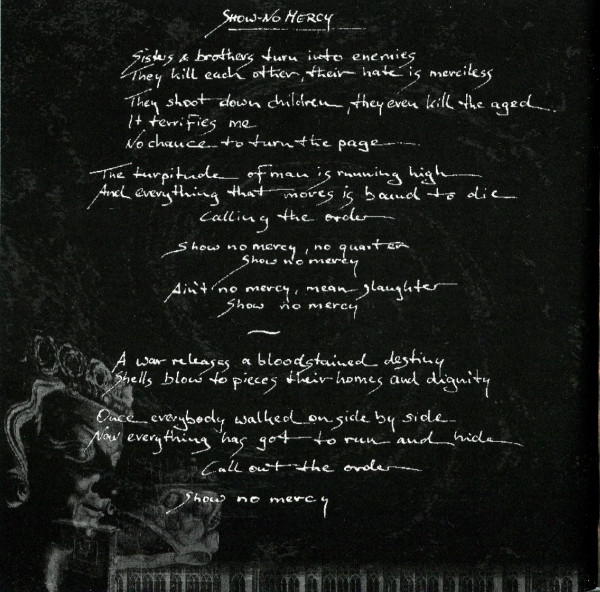 Show-No Mercy
Sisters & brothers turn into enemies
They kill each other, their hate is merciless
They shoot down children, they even kill the aged.
It terrifies me
No chance to turn the page
The turpitude of man is running high
And everything that moves is bound to die
Calling the order
Show no mercy, no quarter
Show no mercy
Ain't no mercy, mean slaughter
Show no mercy
A war releases a bloodstained destiny
Shells blow to pieces their homes and dignity
Once everybody walked on side by side
Now everything has got to run and hide
Call out the order
Show no mercy